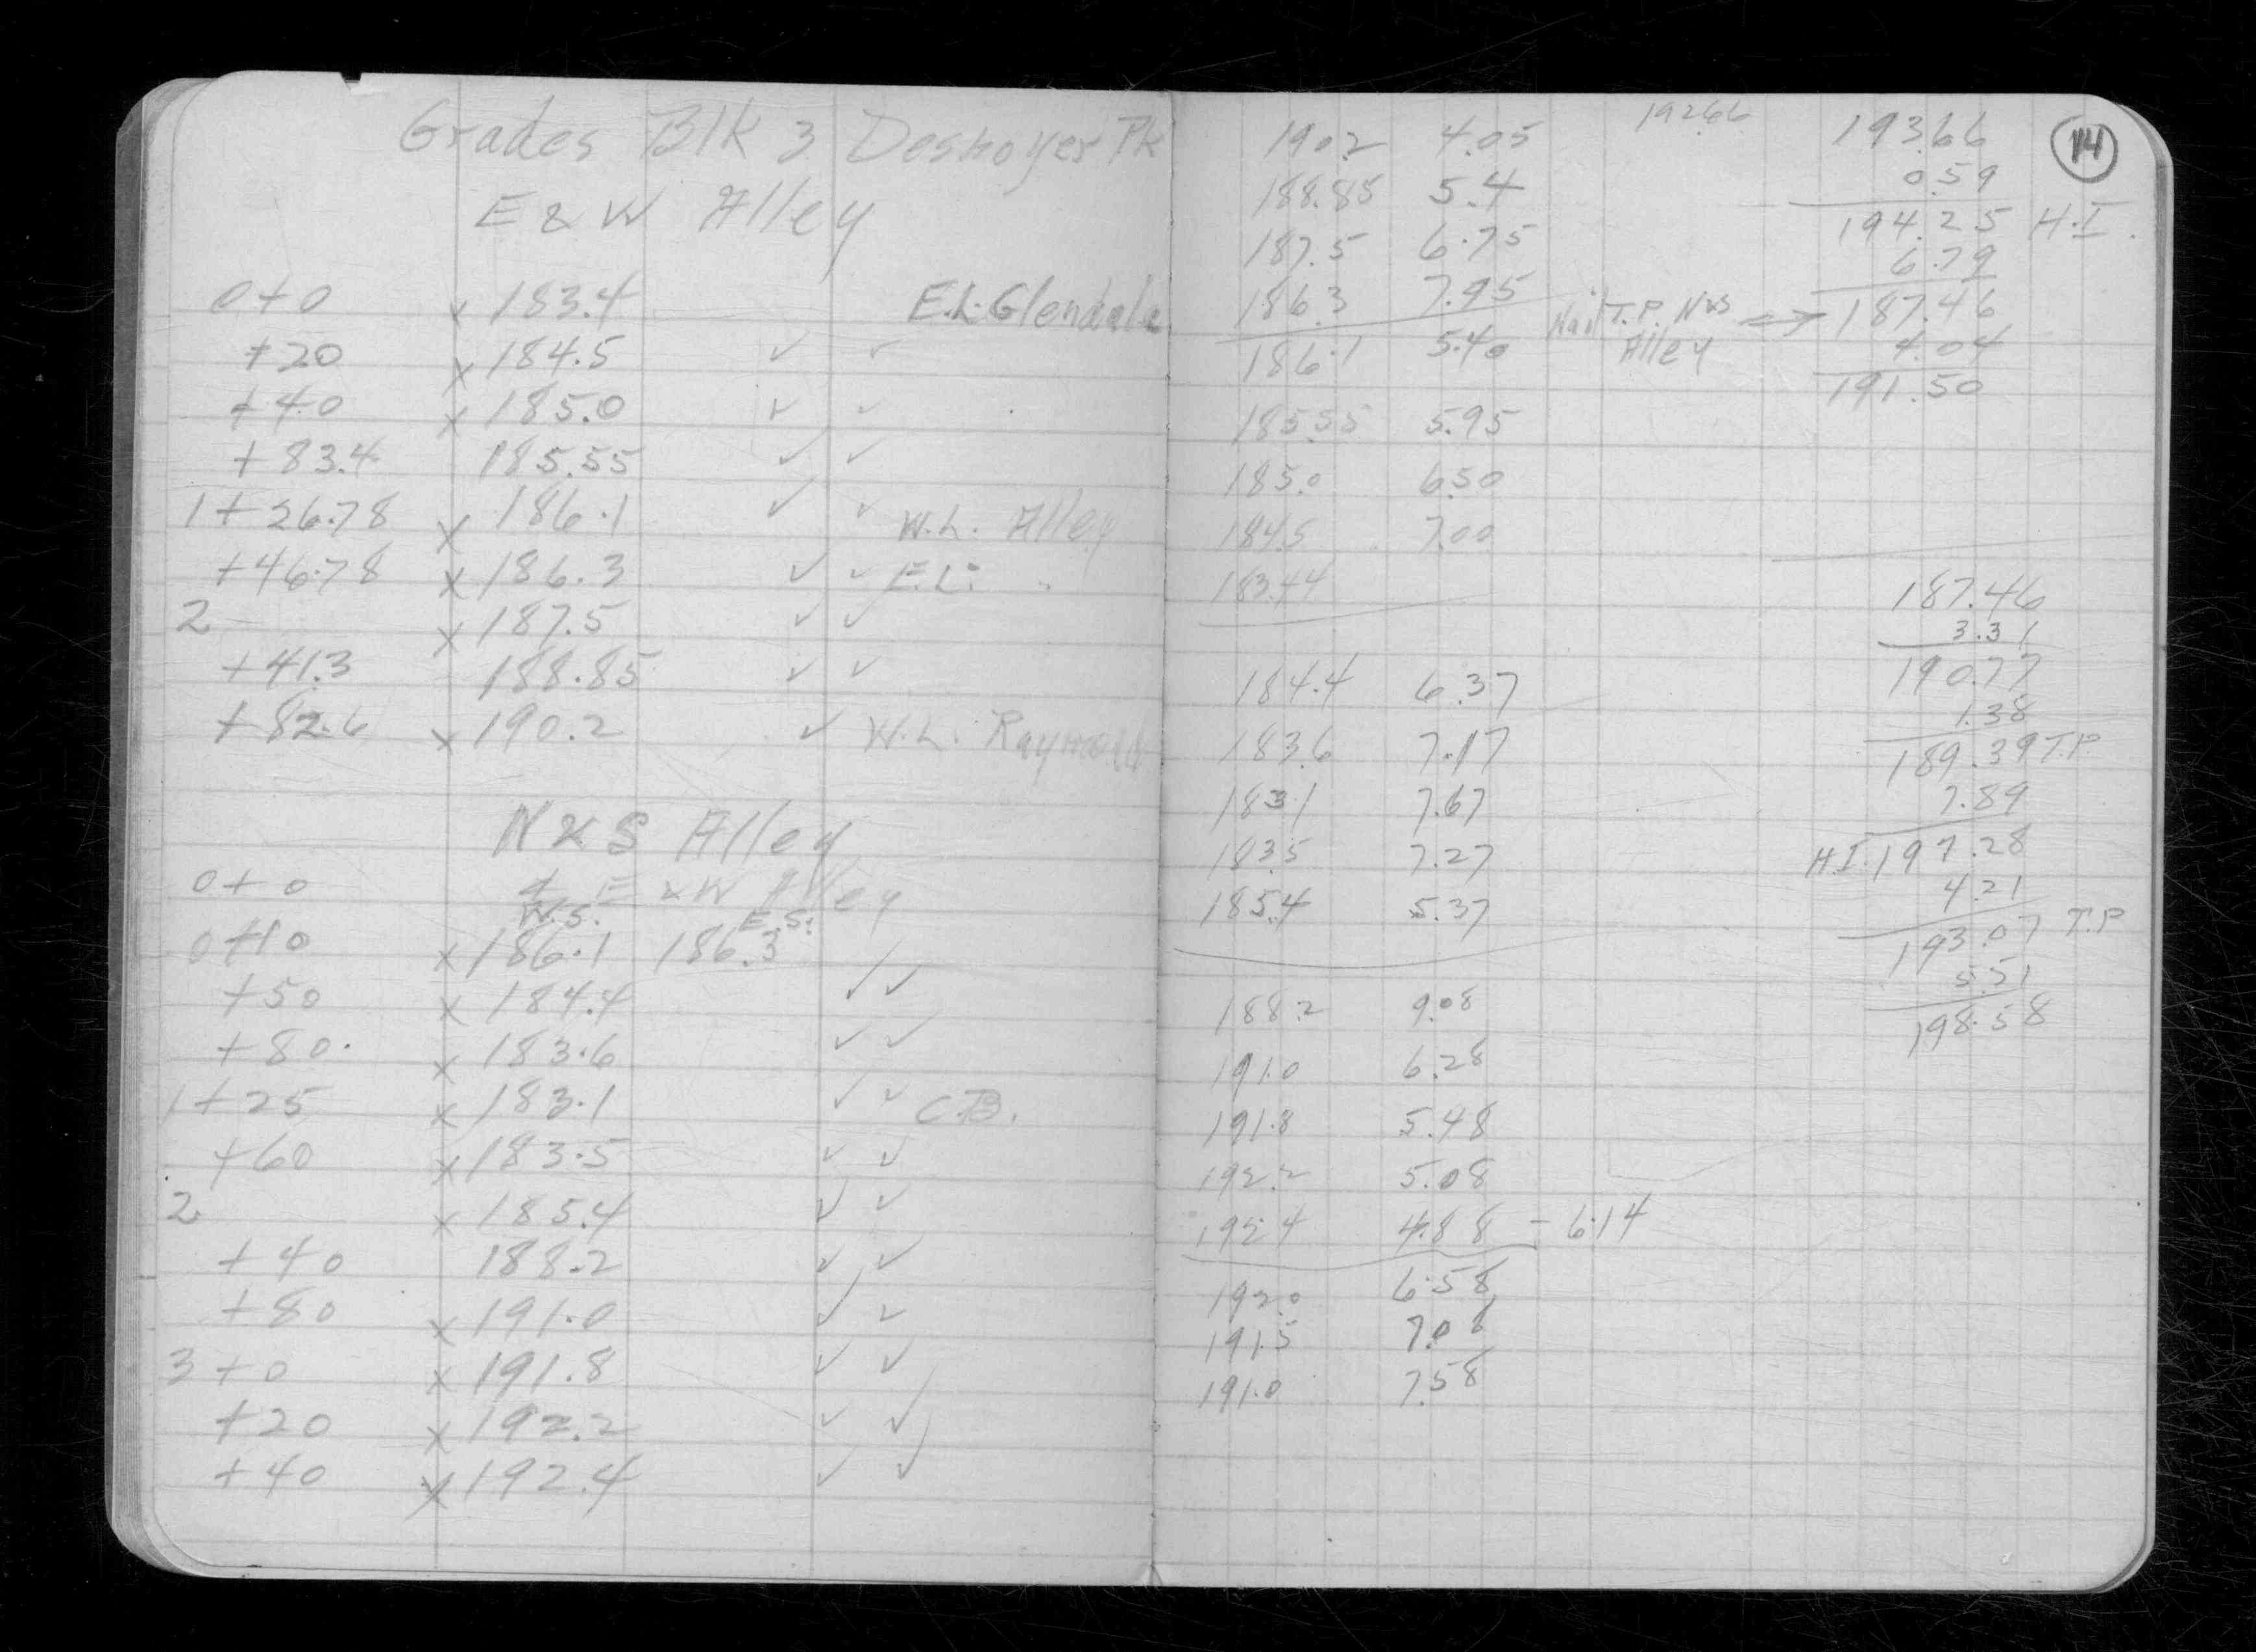 Grades Blk 3 Destroyer Pk
E & W Alley
0+0 x 183.4 E.L. Glendale
+20 x 184.5 ✓ ✓
+40 x 185.0 ✓ ✓
+83.4 185.55 ✓ ✓
1+26.78 x 186.1 ✓ ✓ W.L. Alley
+46.78 x 186.3 ✓ ✓ E.L. "
2 x 187.5 ✓ ✓
+41.3 188.85 ✓ ✓
+82.6 x 190.2 ✓ W.L. Raymond
N & S Alley
0+0 E & W Alley
W.S. E.S.
0+10 x 186.1 186.3 ✓ ✓
+50 x 184.4 ✓ ✓
+80. x 183.6 ✓ ✓
1+25 x 183.1 ✓ ✓ C.B.
+60 x 183.5 ✓ ✓
2 x 185.4 ✓ ✓
+40 188.2 ✓ ✓
+80 x 191.0 ✓ ✓
3+0 x 191.8 ✓ ✓
+20 x 192.2 ✓ ✓
+40 x 192.4 ✓ ✓
14
190.2 4.05
188.85 5.4
187.5 6.75
186.3 7.95
186.1 5.40
185.55 5.95
185.0 6.50
184.5 7.00
183.44
184.4 6.37
183.6 7.17
183.1 7.67
183.5 7.27
185.4 5.37
188.2 9.08
191.0 6.28
191.8 5.48
192.2 5.08
192.4 4.88 - 6.14
192.0 6.58
191.5 7.08
191.0 7.58
192.66
193.66
0.59
194.25 H.I.
6.79
Nail T.P. N&S Alley => 187.46
4.04
191.50
187.46
3.31
190.77
1.38
189.39 T.P.
7.89
H.I. 197.28
4.21
193.07 T.P
5.51
198.58